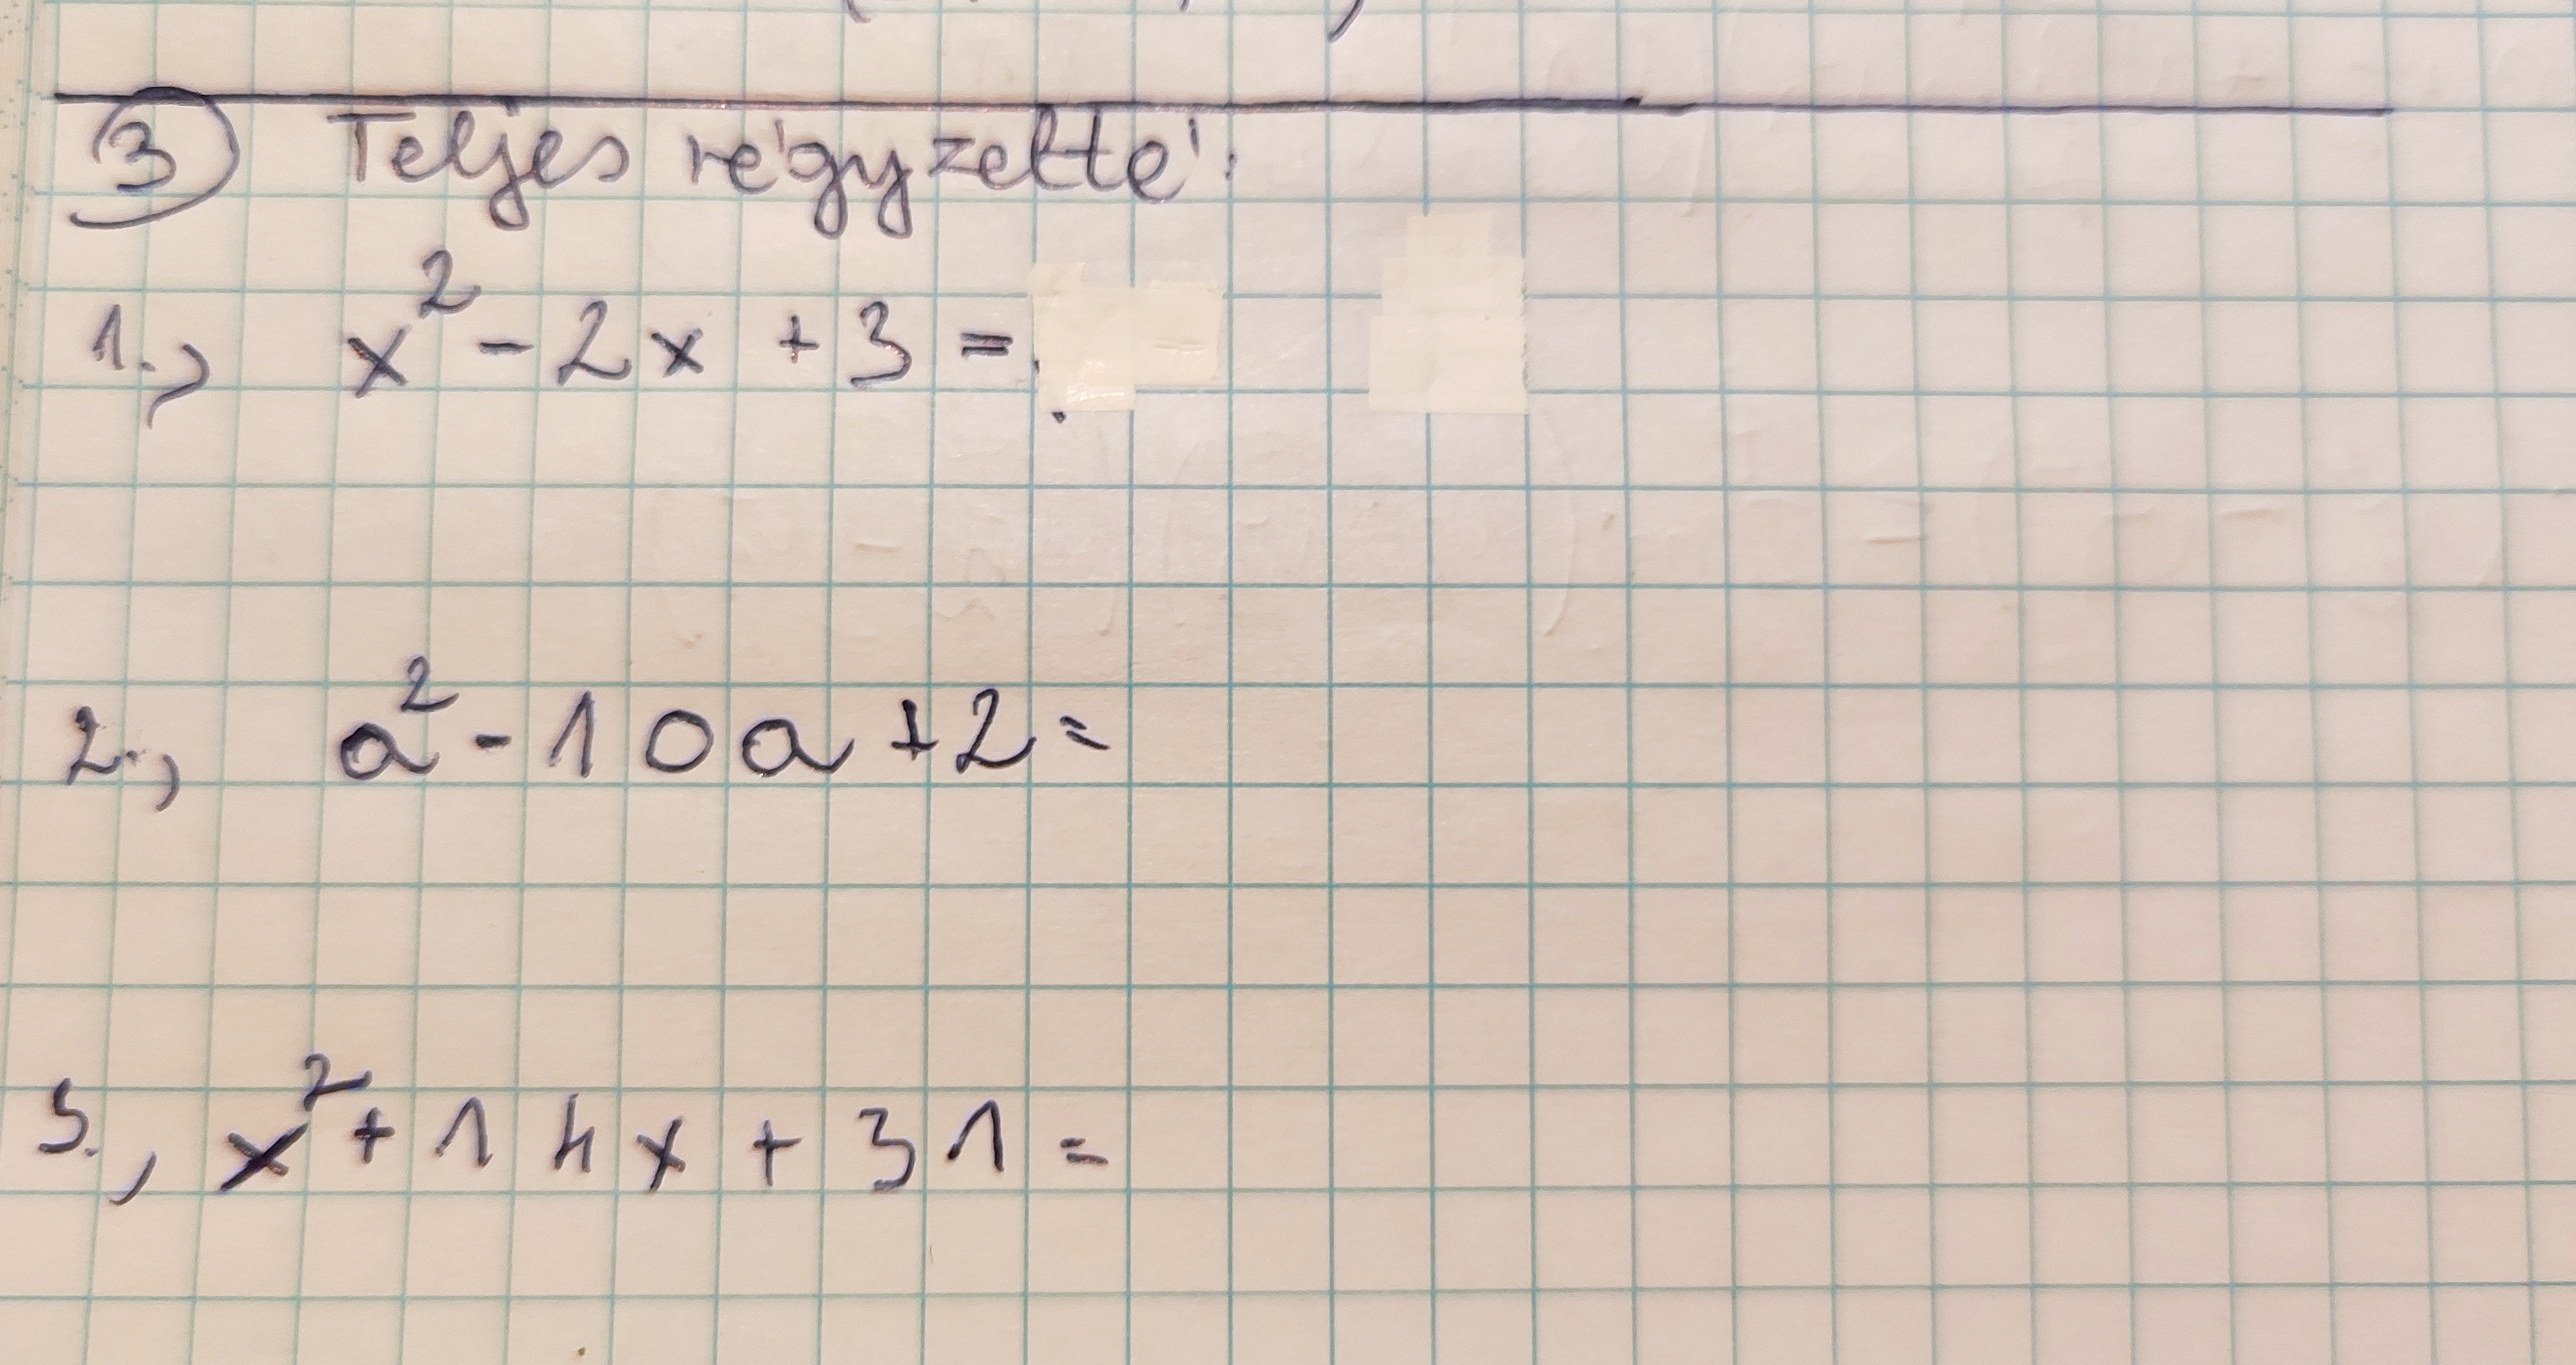 ③ Teljes négyzetté:
1., x² - 2x + 3 =
2., a² - 10a + 2 =
3., x² + 14x + 31 =